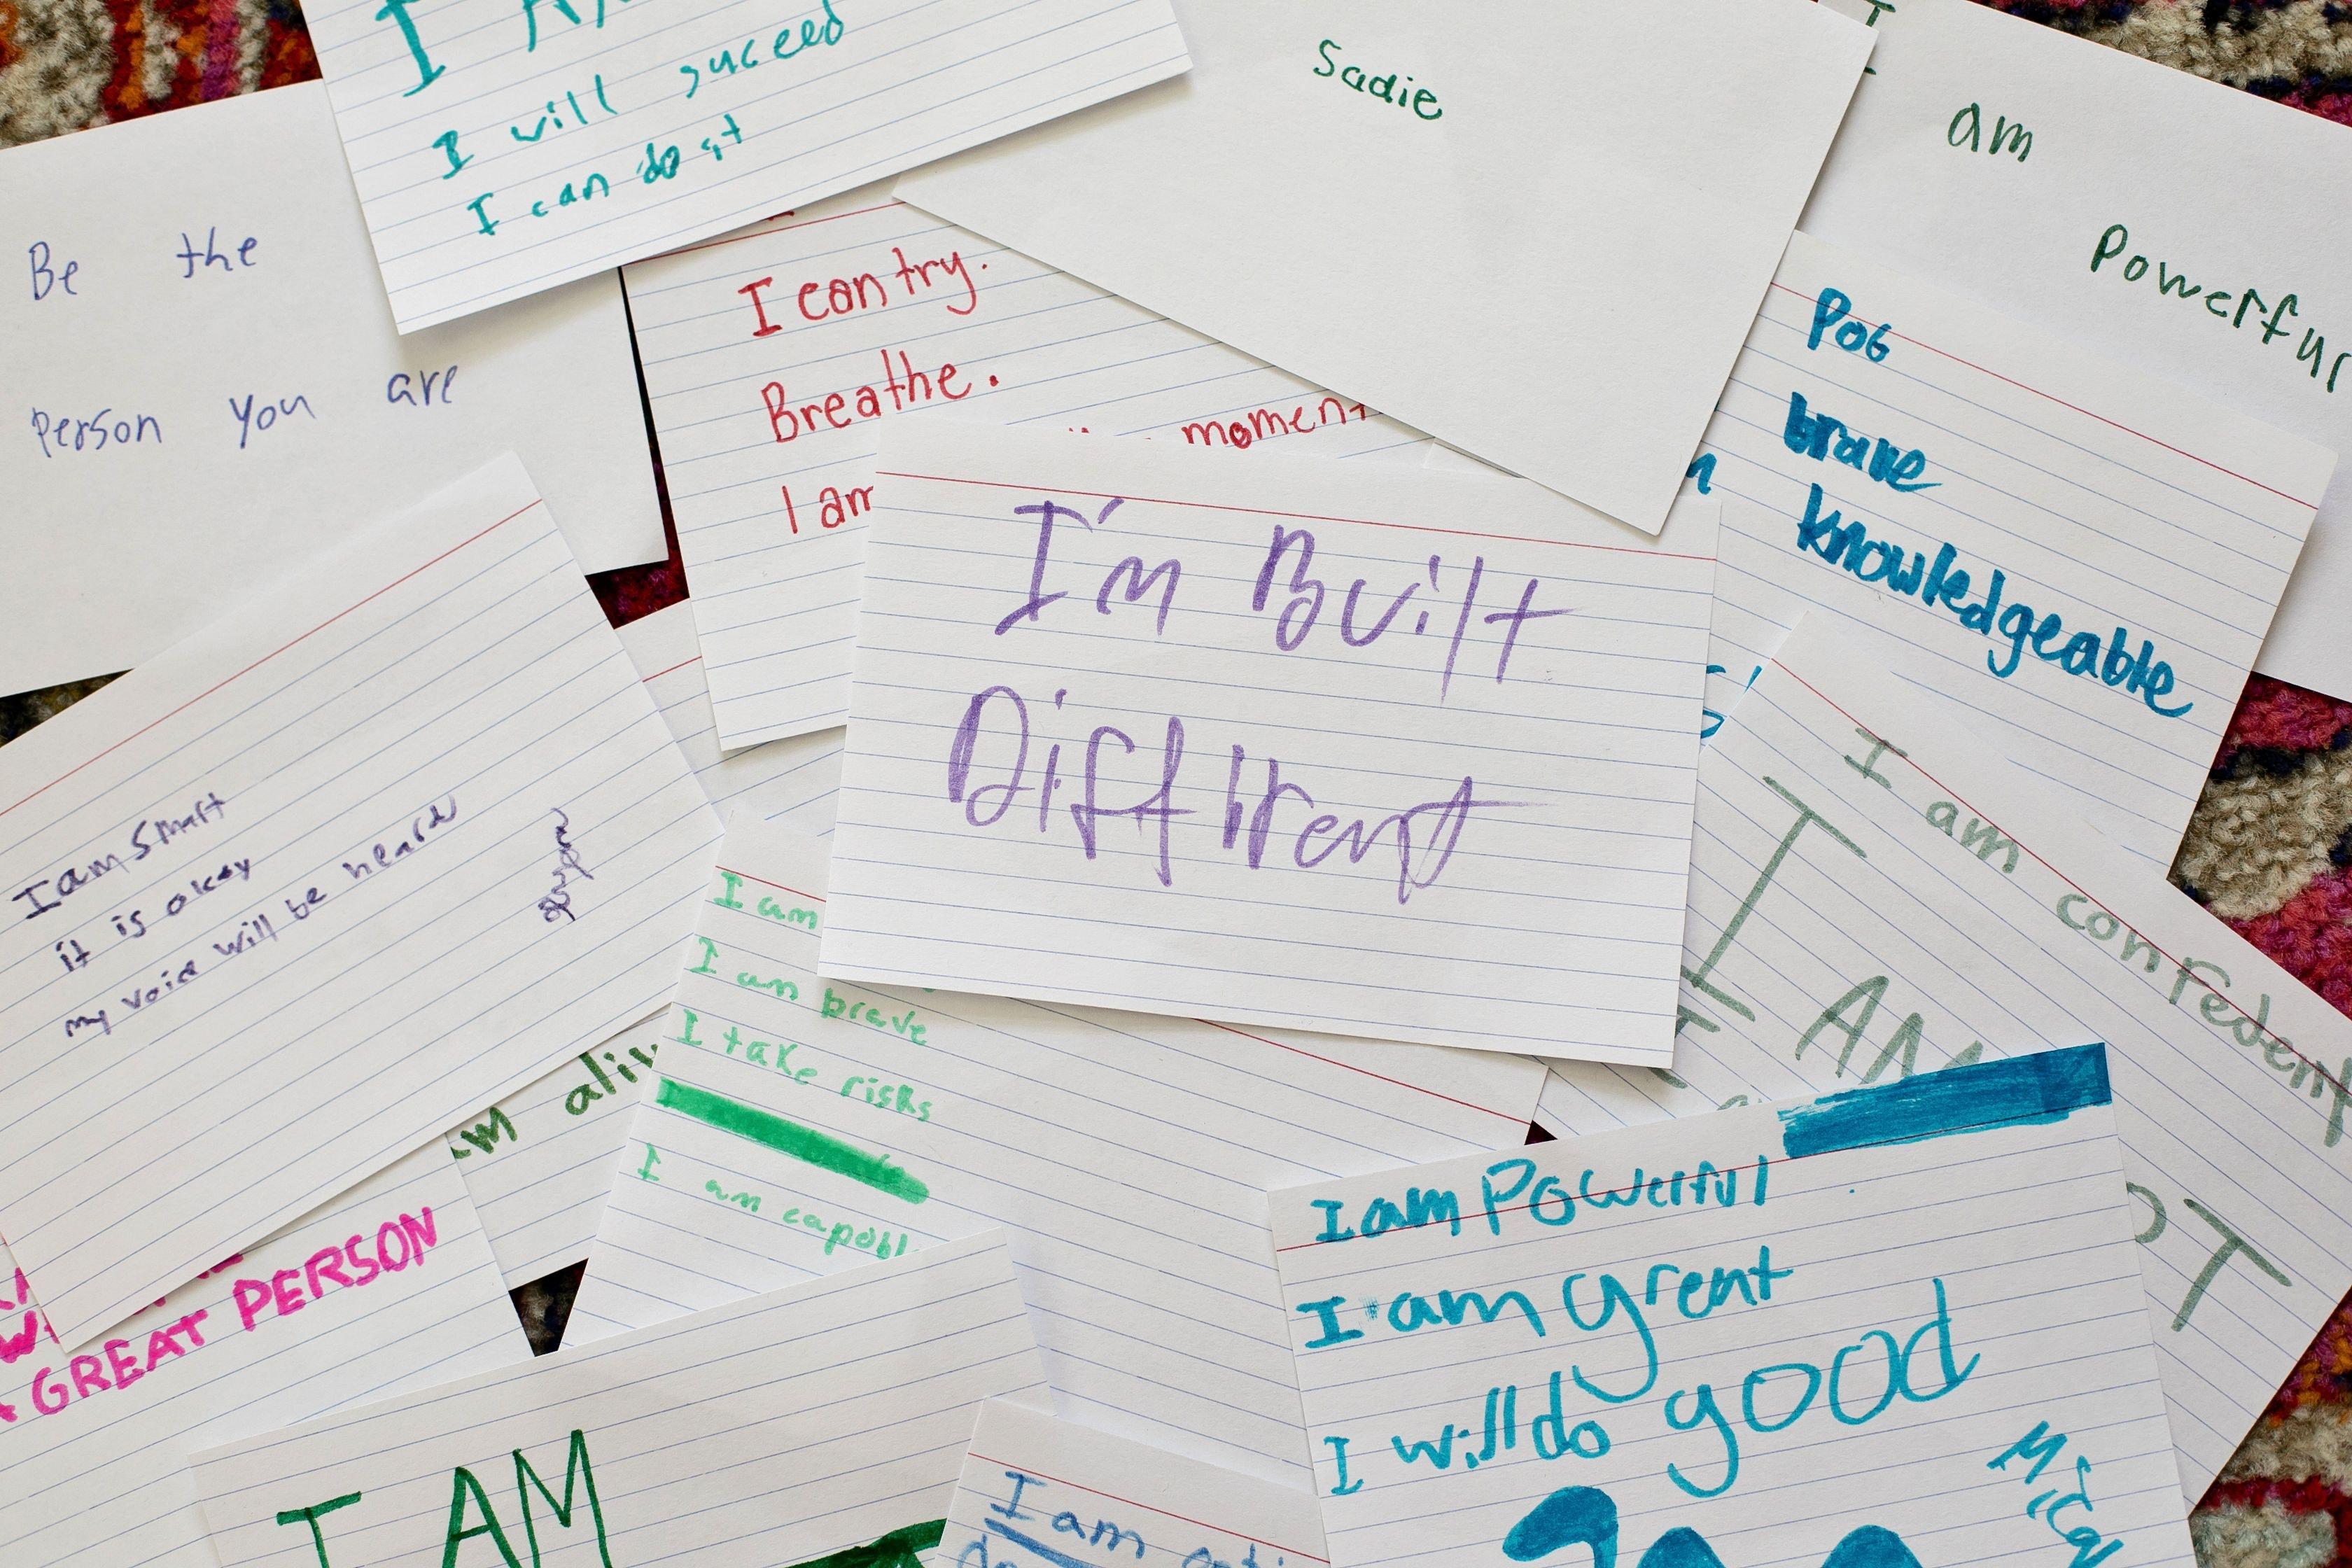 I
I will suceed
I can do it
Sadie
I
am
Powerful
Be the
Person you are
I can try.
Breathe.
moment
I am
POG
brave
knowledgeable
I'm Built
Different
I am Smart
it is okay
my voice will be heard
I am
I am brave
I take risks
I am capabl
I am confedent
I AM
alive
GREAT PERSON
I am Powerful
I am great
I will do good
Mical
I AM
I am